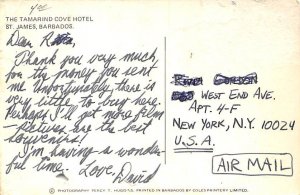 4.00
THE TAMARIND COVE HOTEL
ST. JAMES, BARBADOS.
Dear
Thank you very much
for the money you sent
me. Unfortunately, there is
very little to buy here.
Perhaps I'll get more film
- pictures are the best
souvenirs!
I'm having a wonder-
ful time. Love, David
WEST END AVE.
APT. 4-F
NEW YORK, N.Y. 10024
U.S.A.
AIR MAIL
© PHOTOGRAPHY PERCY T. PRINTED IN BARBADOS BY COLES PRINTERY LIMITED.